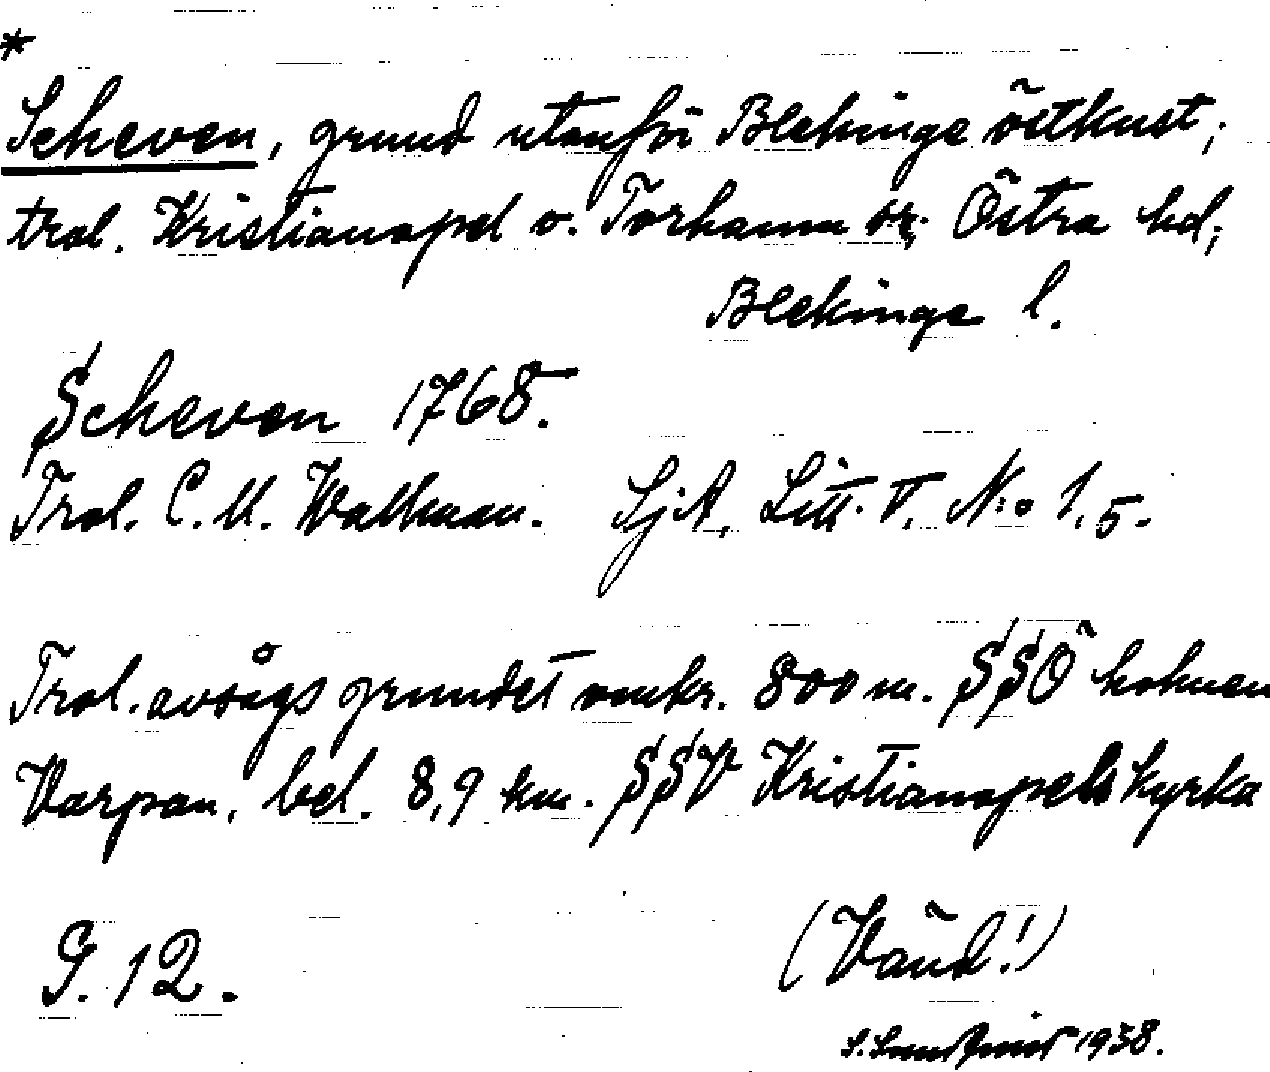 *
Scheven, grund utanför Blekinge östkust;
trol. Kristianopel o. Torhamn sr, Östra hd,
Blekinge l.
Scheven 1768.
Trol. C. U. Wallman. SjA, Litt. V. N:o 1.5.
Trol. avsågs grundet omkr. 800 m. SSÖ holmen
Varpan, bel. 8,9 km. SSV Kristianopels kyrka
G. 12.
(Vänd!)
1938.